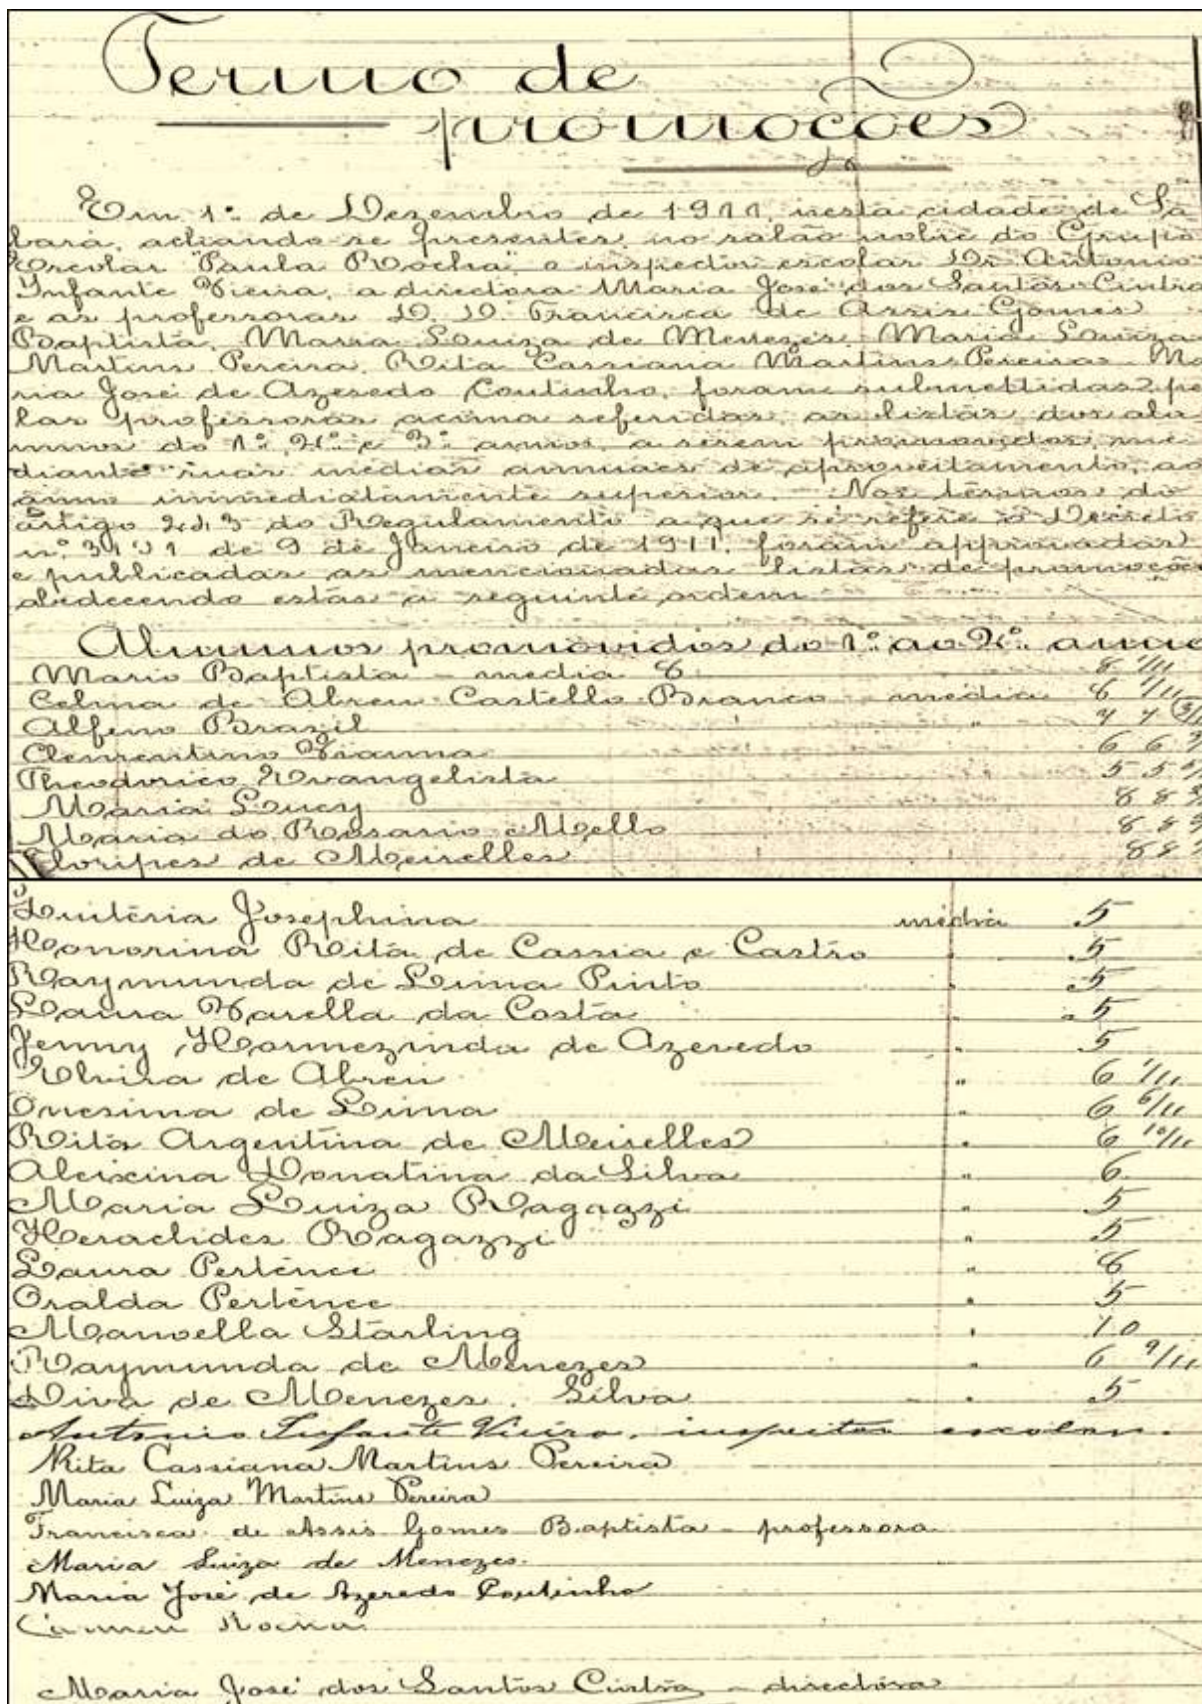 Termo de
promoções
Em 1º de Dezembro de 1911, nesta cidade de Sa
bará, achando-se presentes, no salão nobre do Grupo
Escolar "Paula Rocha", o inspector escolar Dr. Antonio
Infante Vieira, a directora Maria José dos Santos Cintra
e as professoras D. D. Francisca de Assis Gomes
Baptista, Maria Luiza de Menezes, Maria Luiza
Martins Pereira, Rita Cassiana Martins Pereira Ma
ria José de Azeredo Coutinho, foram submettidas pe
las professoras acima referidas, as listas dos alu
mnos do 1º, 2º e 3º annos, a serem promovidos, me
diante suas médias annuaes de aproveitamento, ao
anno immediatamente superior. - Nos termos do
artigo do Regulamento a que se refere o Decreto
nº de 9 de Janeiro de 1911, foram approvadas
e publicadas as mencionadas listas de promoção
obedecendo estas a seguinte ordem
Alumnos promovidos do 1º ao 2º anno
Mario Baptista - media 8 8 1/11
Celina de Abreu Castello Branco - média 8 1/11
Alfeno Brazil " 7 7
Clementino Vianna 6 6
Theodorico Evangelista 5 5
Maria Lucy 8 8
Maria do Rosario Mello 8 8
Floripes de Meirelles 8 8
Quitéria Josephina média 5
Honorina Rita de Cassia e Castro " 5
Raymunda de Lima Pinto " 5
Laura Varella da Costa " 5
Jenny Hormezinda de Azevedo " 5
Elvira de Abreu " 6 1/11
Onesima de Lima " 6 6/11
Rita Argentina de Meirelles " 6 10/11
Aleixina Donatina da Silva " 6
Maria Luiza Ragazzi " 5
Heraclides Ragazzi " 5
Laura Pertence " 8
Oralda Pertence " 5
Manoella Starling " 10
Raymunda de Menezes " 6 9/11
Diva de Menezes Silva " 5
Antonio Infante Vieira, inspector escolar.
Rita Cassiana Martins Pereira
Maria Luiza Martins Pereira
Francisca de Assis Gomes Baptista - professora
Maria Luiza de Menezes.
Maria José de Azeredo Coutinho
Carmen Rocha
Maria José dos Santos Cintra - directora